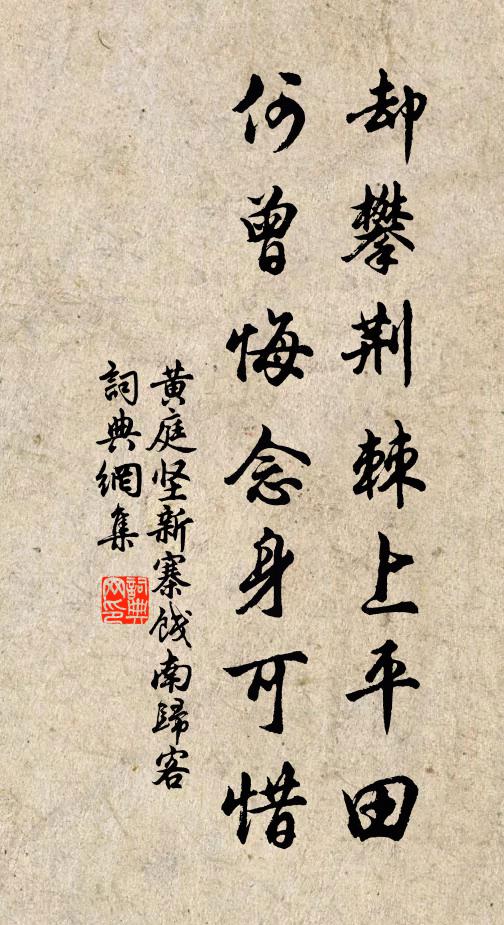 却攀荆棘上平田
何曾悔念身可惜
黄庭坚新寨饯南歸客
詞典網集
詞典
网印